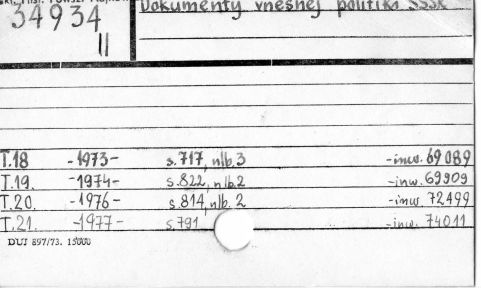 34934
II
Dokumenty vnešnej politiki SSSR
T.18 -1973- s.717, nlb.3 -inw. 69089
T.19. -1974- s.822, nlb.2 -inw. 69909
T.20. -1976- s.814, nlb. 2 -inw. 72499
T.21. -1977- s.791 -inw. 74011
DUJ 897/73. 15000